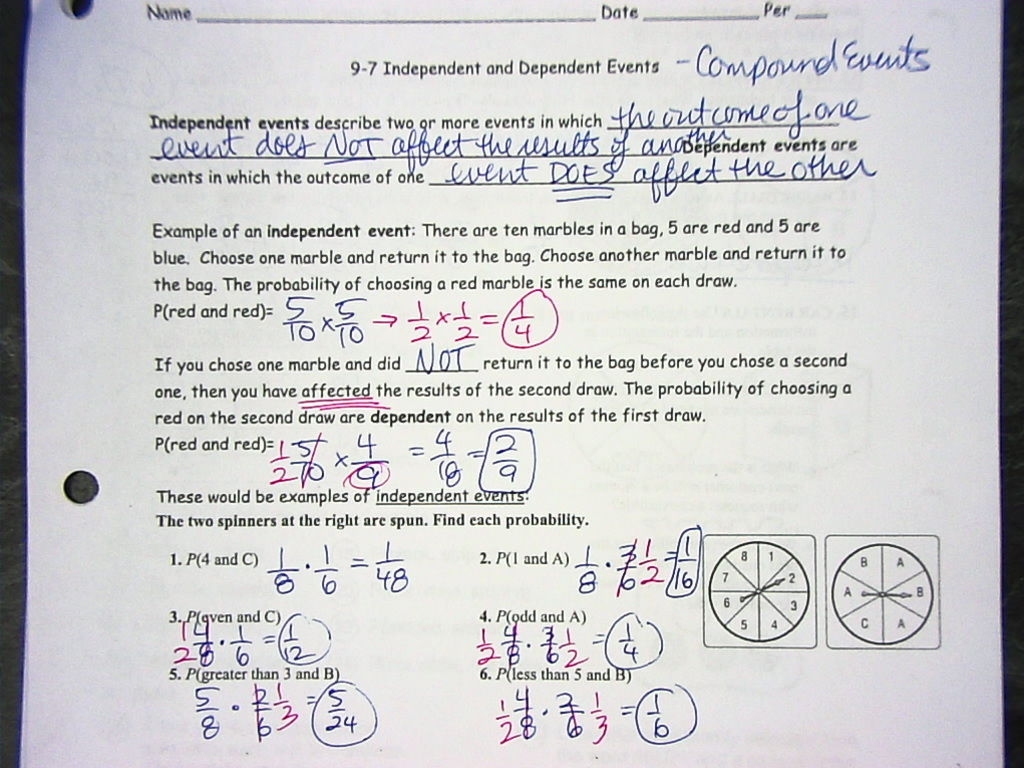 Name ____ Date ____ Per ____
9-7 Independent and Dependent Events - Compound Events
Independent events describe two or more events in which the outcome of one
event does NOT affect the results of another Dependent events are
events in which the outcome of one event DOES affect the other
Example of an independent event: There are ten marbles in a bag, 5 are red and 5 are
blue. Choose one marble and return it to the bag. Choose another marble and return it to
the bag. The probability of choosing a red marble is the same on each draw.
P(red and red)= 5/10 × 5/10 → 1/2 × 1/2 = 1/4
If you chose one marble and did NOT return it to the bag before you chose a second
one, then you have affected the results of the second draw. The probability of choosing a
red on the second draw are dependent on the results of the first draw.
P(red and red)= 1/2 5/10 × 4/9 = 4/18 = 2/9
These would be examples of independent events:
The two spinners at the right are spun. Find each probability.
1. P(4 and C) 1/8 · 1/6 = 1/48
2. P(1 and A) 1/8 · 3/6 1/2 = 1/16
8 1 2 3 4 5 6 7
B A B A C A
3. P(even and C)
1/2 4/8 · 1/6 = 1/12
4. P(odd and A)
1/2 4/8 · 3/6 1/2 = 1/4
5. P(greater than 3 and B)
5/8 · 2/6 1/3 = 5/24
6. P(less than 5 and B)
1/2 4/8 · 2/6 1/3 = 1/6